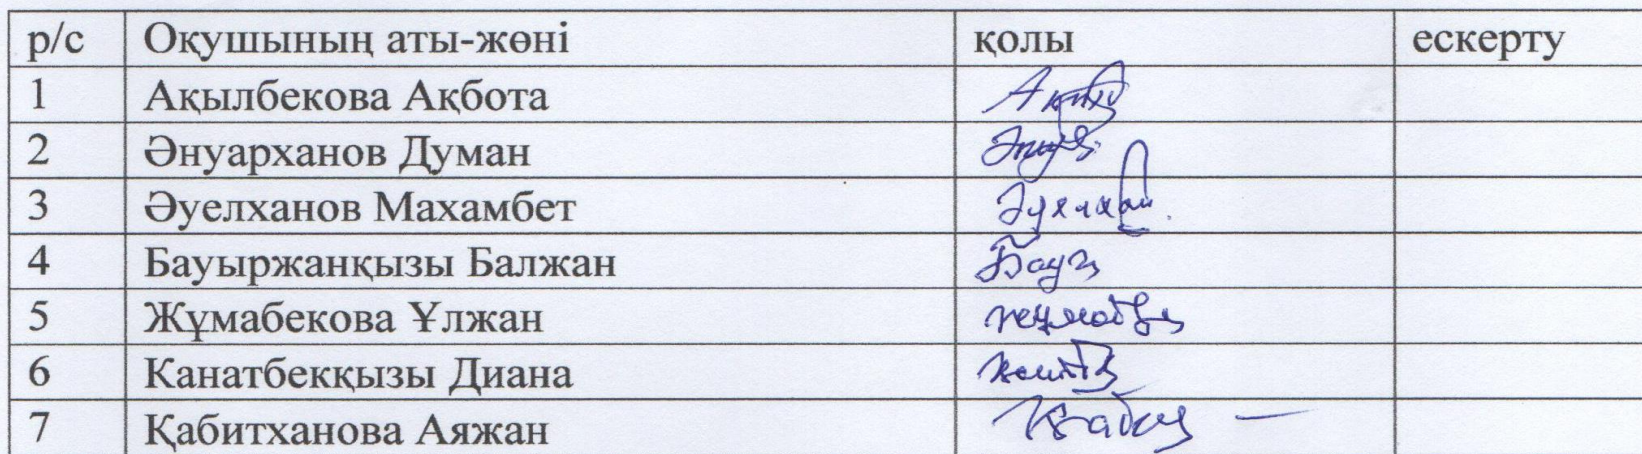 р/с Оқушының аты-жөні қолы ескерту
1 Ақылбекова Ақбота
2 Әнуарханов Думан
3 Әуелханов Махамбет
4 Бауыржанқызы Балжан
5 Жұмабекова Ұлжан
6 Канатбекқызы Диана
7 Қабитханова Аяжан